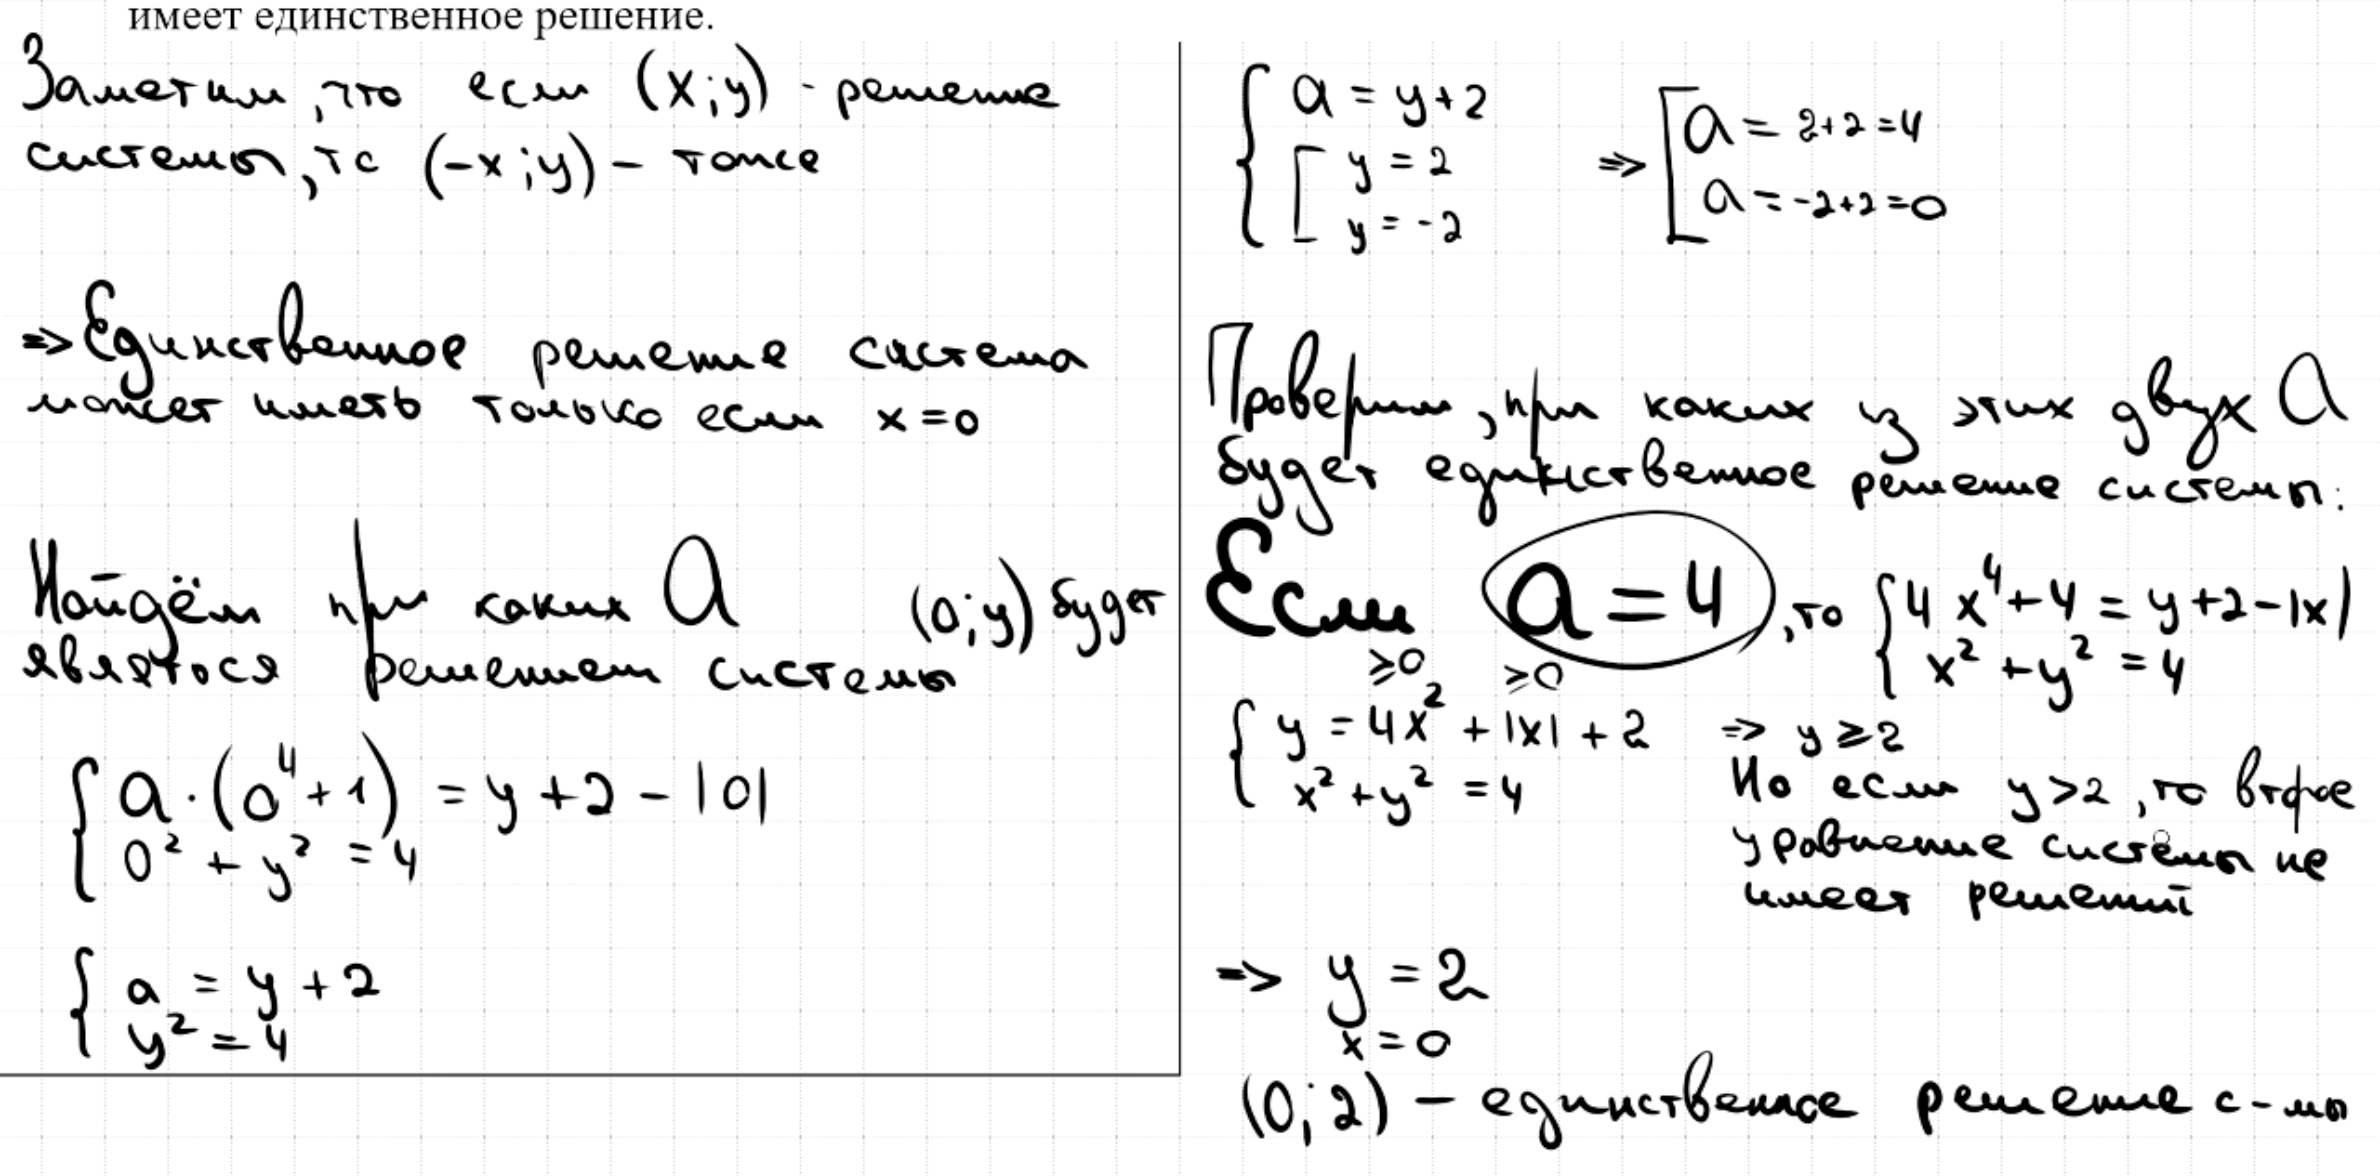 имеет единственное решение.
Заметим, что если (x; y) - решение
системы, то (-x; y) - тоже
=> Единственное решение система
может иметь только если x = 0
Найдём при каких a (0; y) будет
являться решением системы
{ a · (0⁴ + 1) = y + 2 - |0|
0² + y² = 4
{ a = y + 2
y² = 4
{ a = y + 2
[ y = 2
y = -2
=> [ a = 2+2 = 4
a = -2+2 = 0
Проверим, при каких из этих двух a
будет единственное решение системы:
Если a = 4, то { 4x⁴ + 4 = y + 2 - |x|
x² + y² = 4
≥0 ≥0
{ y = 4x² + |x| + 2 => y ≥ 2
x² + y² = 4
Но если y > 2, то второе
уравнение системы не
имеет решений
=> y = 2
x = 0
(0; 2) - единственное решение с-мы